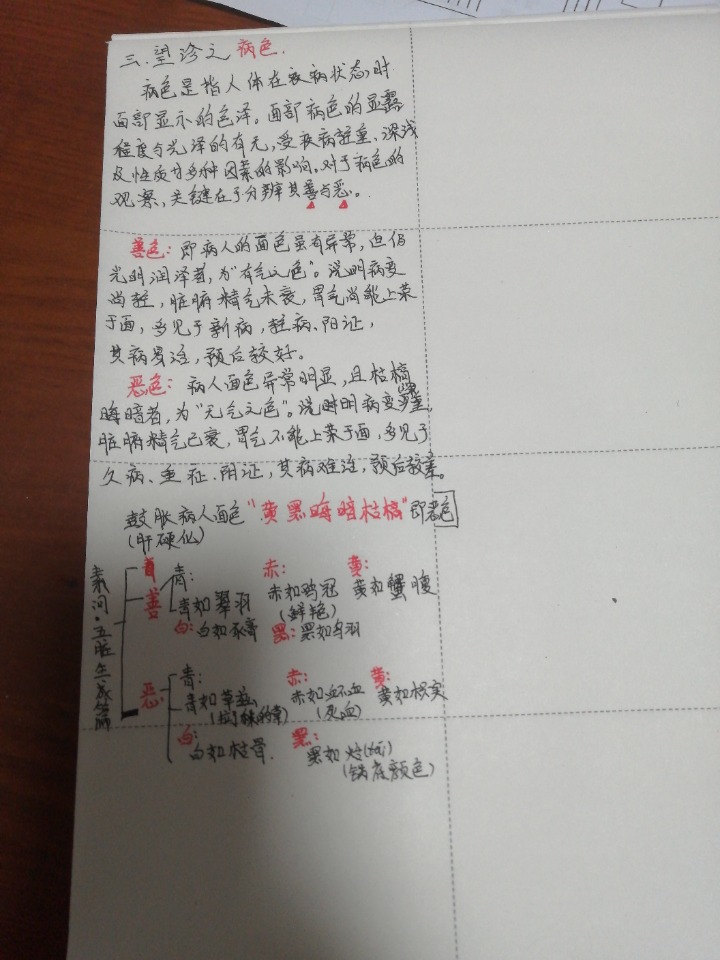 三.望诊之病色.
病色是指人体在疾病状态时
面部显示的色泽。面部病色的显露
程度与光泽的有无,受疾病轻重、深浅
及性质廿多种因素的影响。对于病色的
观察,关键在于分辨其善与恶。
善色:即病人的面色虽有异常,但仍
光明润泽者,为"有气之色"。说明病变
尚轻,脏腑精气未衰,胃气尚能上荣
于面,多见于新病,轻病、阳证,
其病易治,预后较好。
恶色:病人面色异常明显,且枯槁
晦暗者,为"无气之色"。说明病变深重,
脏腑精气已衰,胃气不能上荣于面,多见于
久病、重症、阴证,其病难治,预后较差。
鼓胀病人面色"黄黑晦暗枯槁"即恶色
(肝硬化)
素问·五脏生成篇
善
青: 赤: 黄:
青如翠羽 赤如鸡冠 黄如蟹腹
(鲜艳)
白:白如豕膏 黑:黑如乌羽
恶
青: 赤: 黄:
青如草兹 赤如衃血 黄如枳实
(死血)
白: 黑:
白如枯骨. 黑如炲(tái)
(锅底颜色)